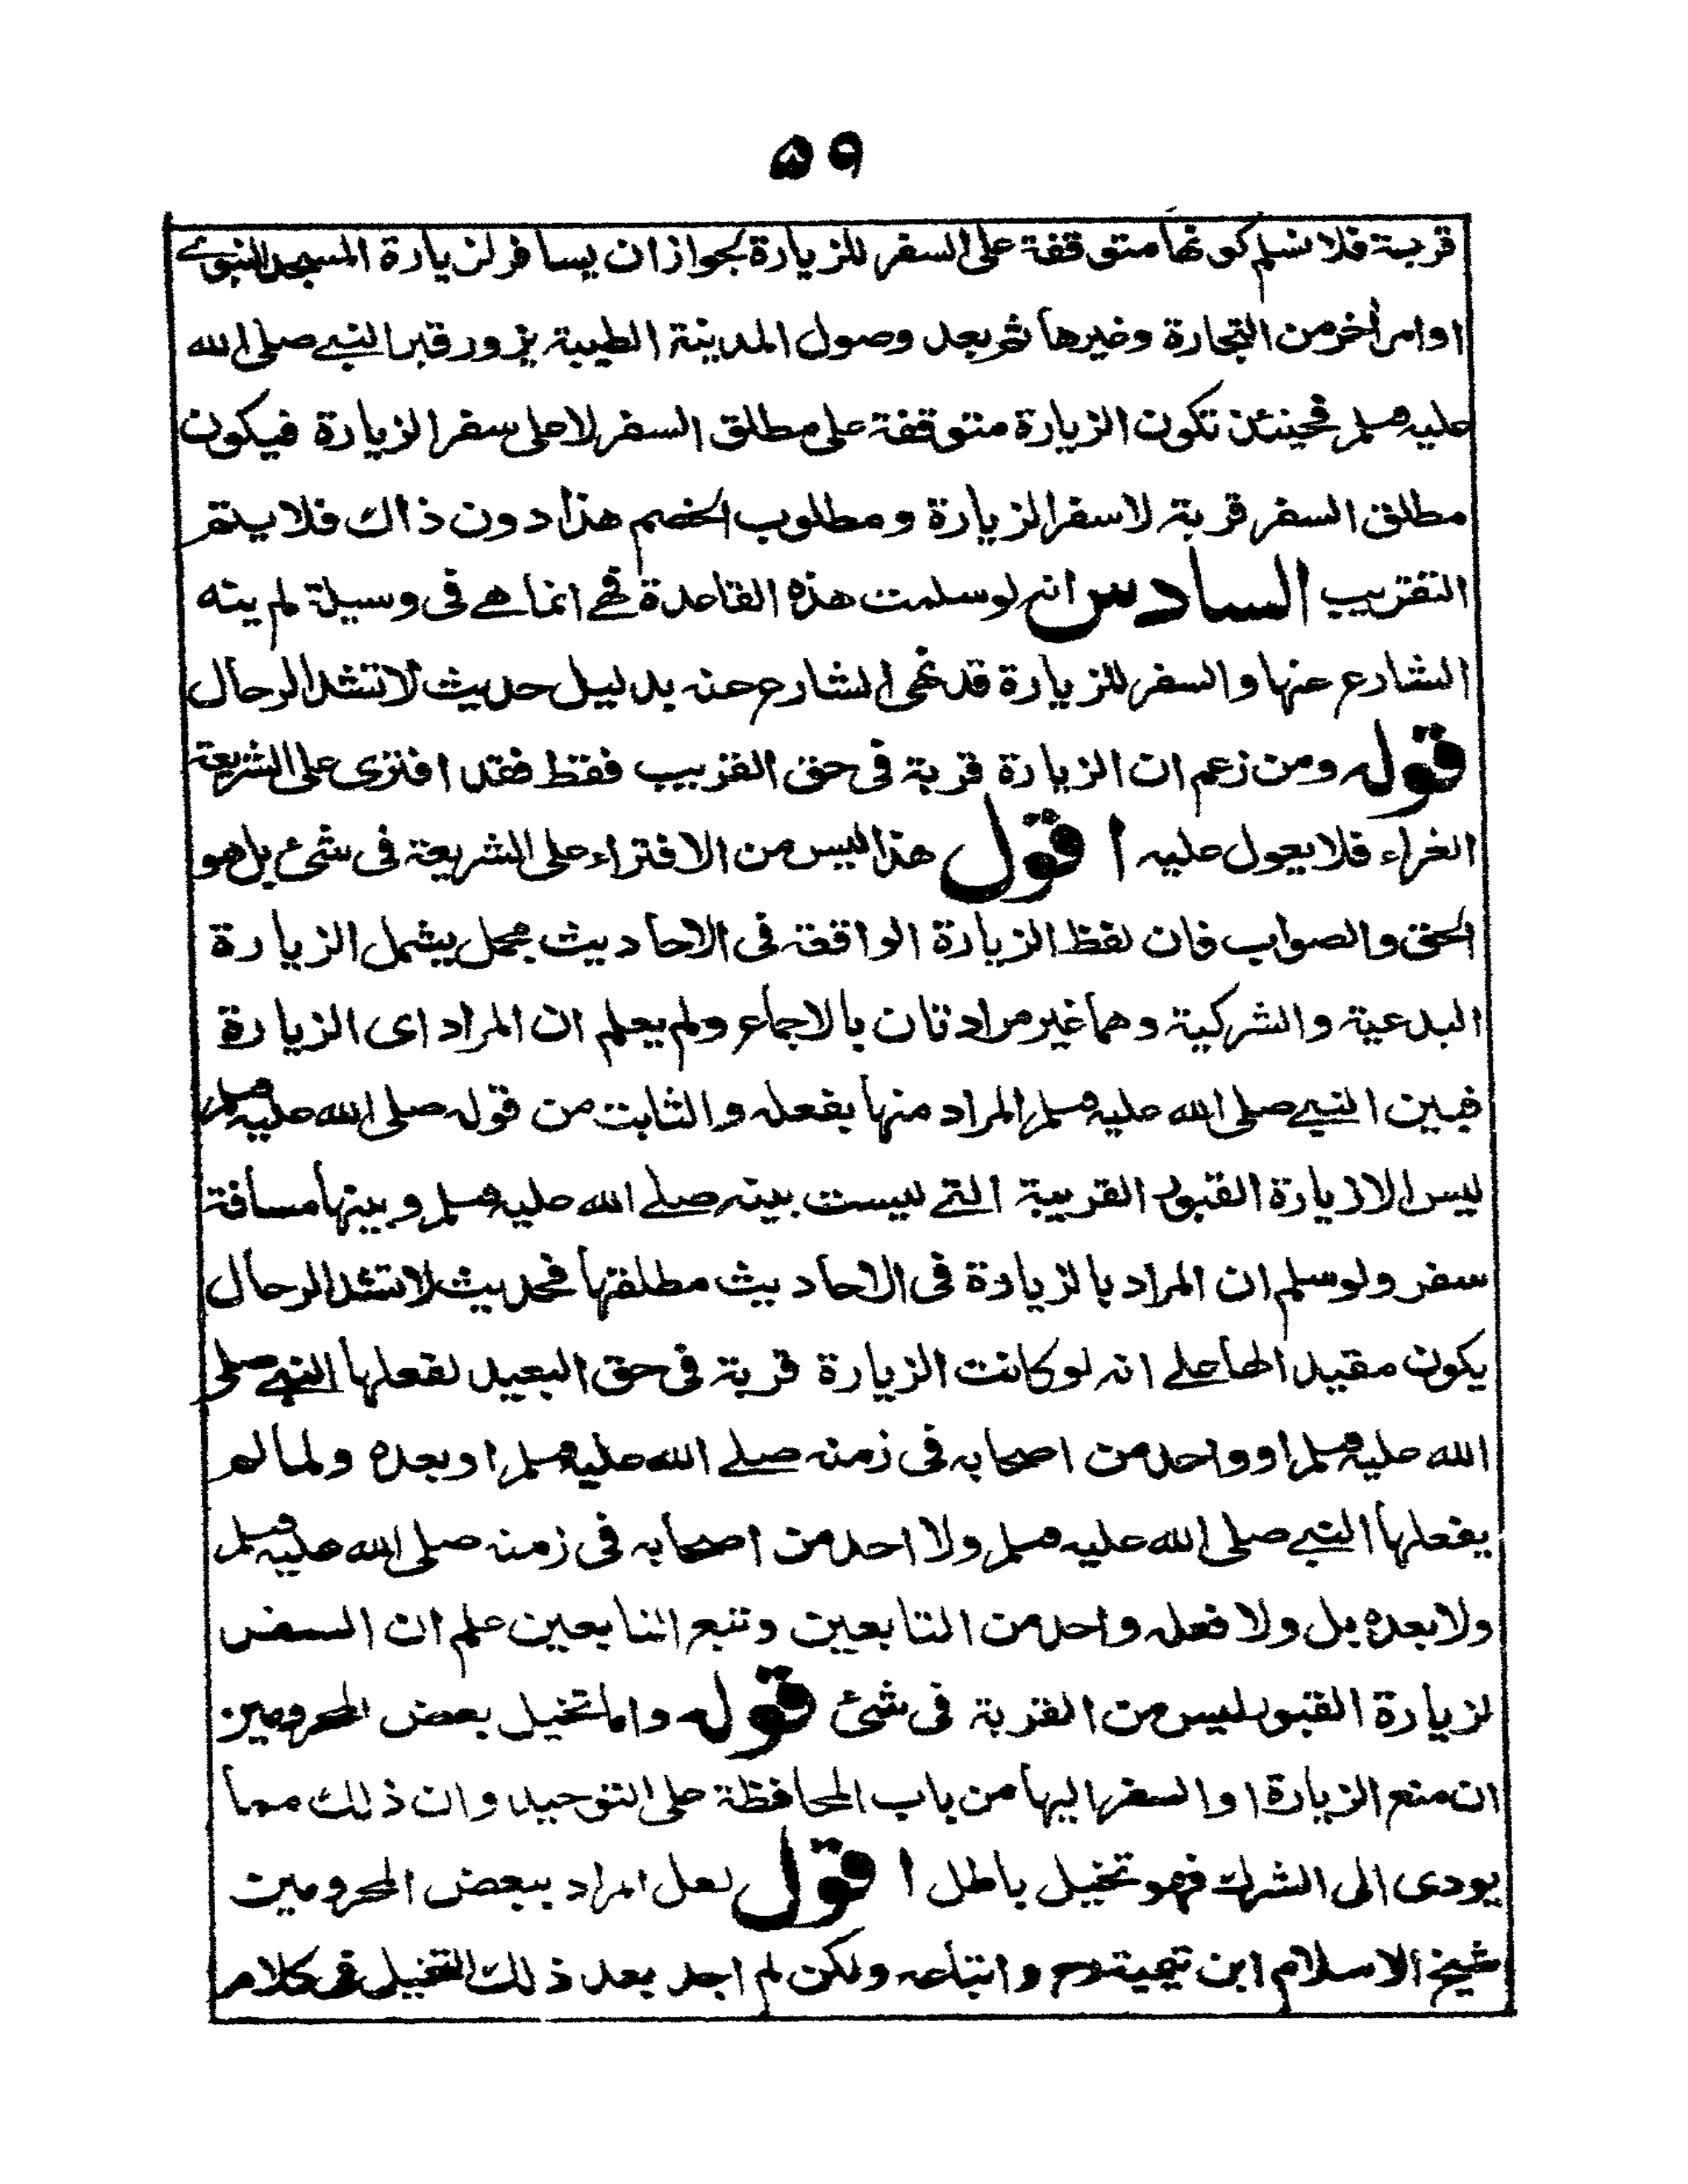 ٥٩
قربة فلا نسلم كونها متوقفة على السفر للزيارة لجواز ان يسافر لزيارة المسجد النبوي
او امر اخر من التجارة وغيرها ثم بعد وصول المدينة الطيبة يزور قبر النبي صلى الله
عليه وسلم فحينئذ تكون الزيارة متوقفة على مطلق السفر لا على سفر الزيارة فيكون
مطلق السفر قربة لا سفر الزيارة ومطلوب الخصم هذا دون ذاك فلا يتم
التقريب السادس انه لو سلمت هذه القاعدة فهي انما هي في وسيلة لم ينه
الشارع عنها والسفر للزيارة قد نهى الشارع عنه بدليل حديث لا تشد الرحال
قوله ومن زعم ان الزيارة قربة في حق القريب فقط فقد افترى على الشريعة
الغراء فلا يعول عليه اقول هذا ليس من الافتراء على الشريعة في شئ بل هو
الحق والصواب فان لفظ الزيارة الواقعة في الاحاديث مجمل يشمل الزيارة
البدعية والشركية وهما غير مرادتان بالاجماع ولم يعلم ان المراد اى الزيارة
فبين النبي صلى الله عليه وسلم المراد منها بفعله والثابت من قوله صلى الله عليه وسلم
ليس الا زيارة القبور القريبة التي ليست بينه صلے الله عليه وسلم وبينها مسافة
سفر ولو سلم ان المراد بالزيادة في الاحاديث مطلقها فحديث لا تشد الرحال
يكون مقيدا لها علے انه لو كانت الزيارة قربة في حق البعيد لفعلها النبي صلى
الله عليه وسلم او واحد من اصحابه في زمنه صلے الله عليه وسلم او بعده ولما لم
يفعلها النبي صلى الله عليه وسلم ولا احد من اصحابه في زمنه صلى الله عليه وسلم
ولا بعده بل ولا فعله واحد من التابعين وتبع التابعين علم ان السفر
لزيارة القبور ليس من القربة في شئ قوله واما تخيل بعض المحرومين
ان منع الزيارة او السفر اليها من باب المحافظة على التوحيد وان ذلك مما
يودى الى الشرك فهو تخيل باطل اقول لعل المراد ببعض المحرومين
شيخ الاسلام ابن تيمية رح واتباعه ولكن لم اجد بعد ذلك التخيل في كلام